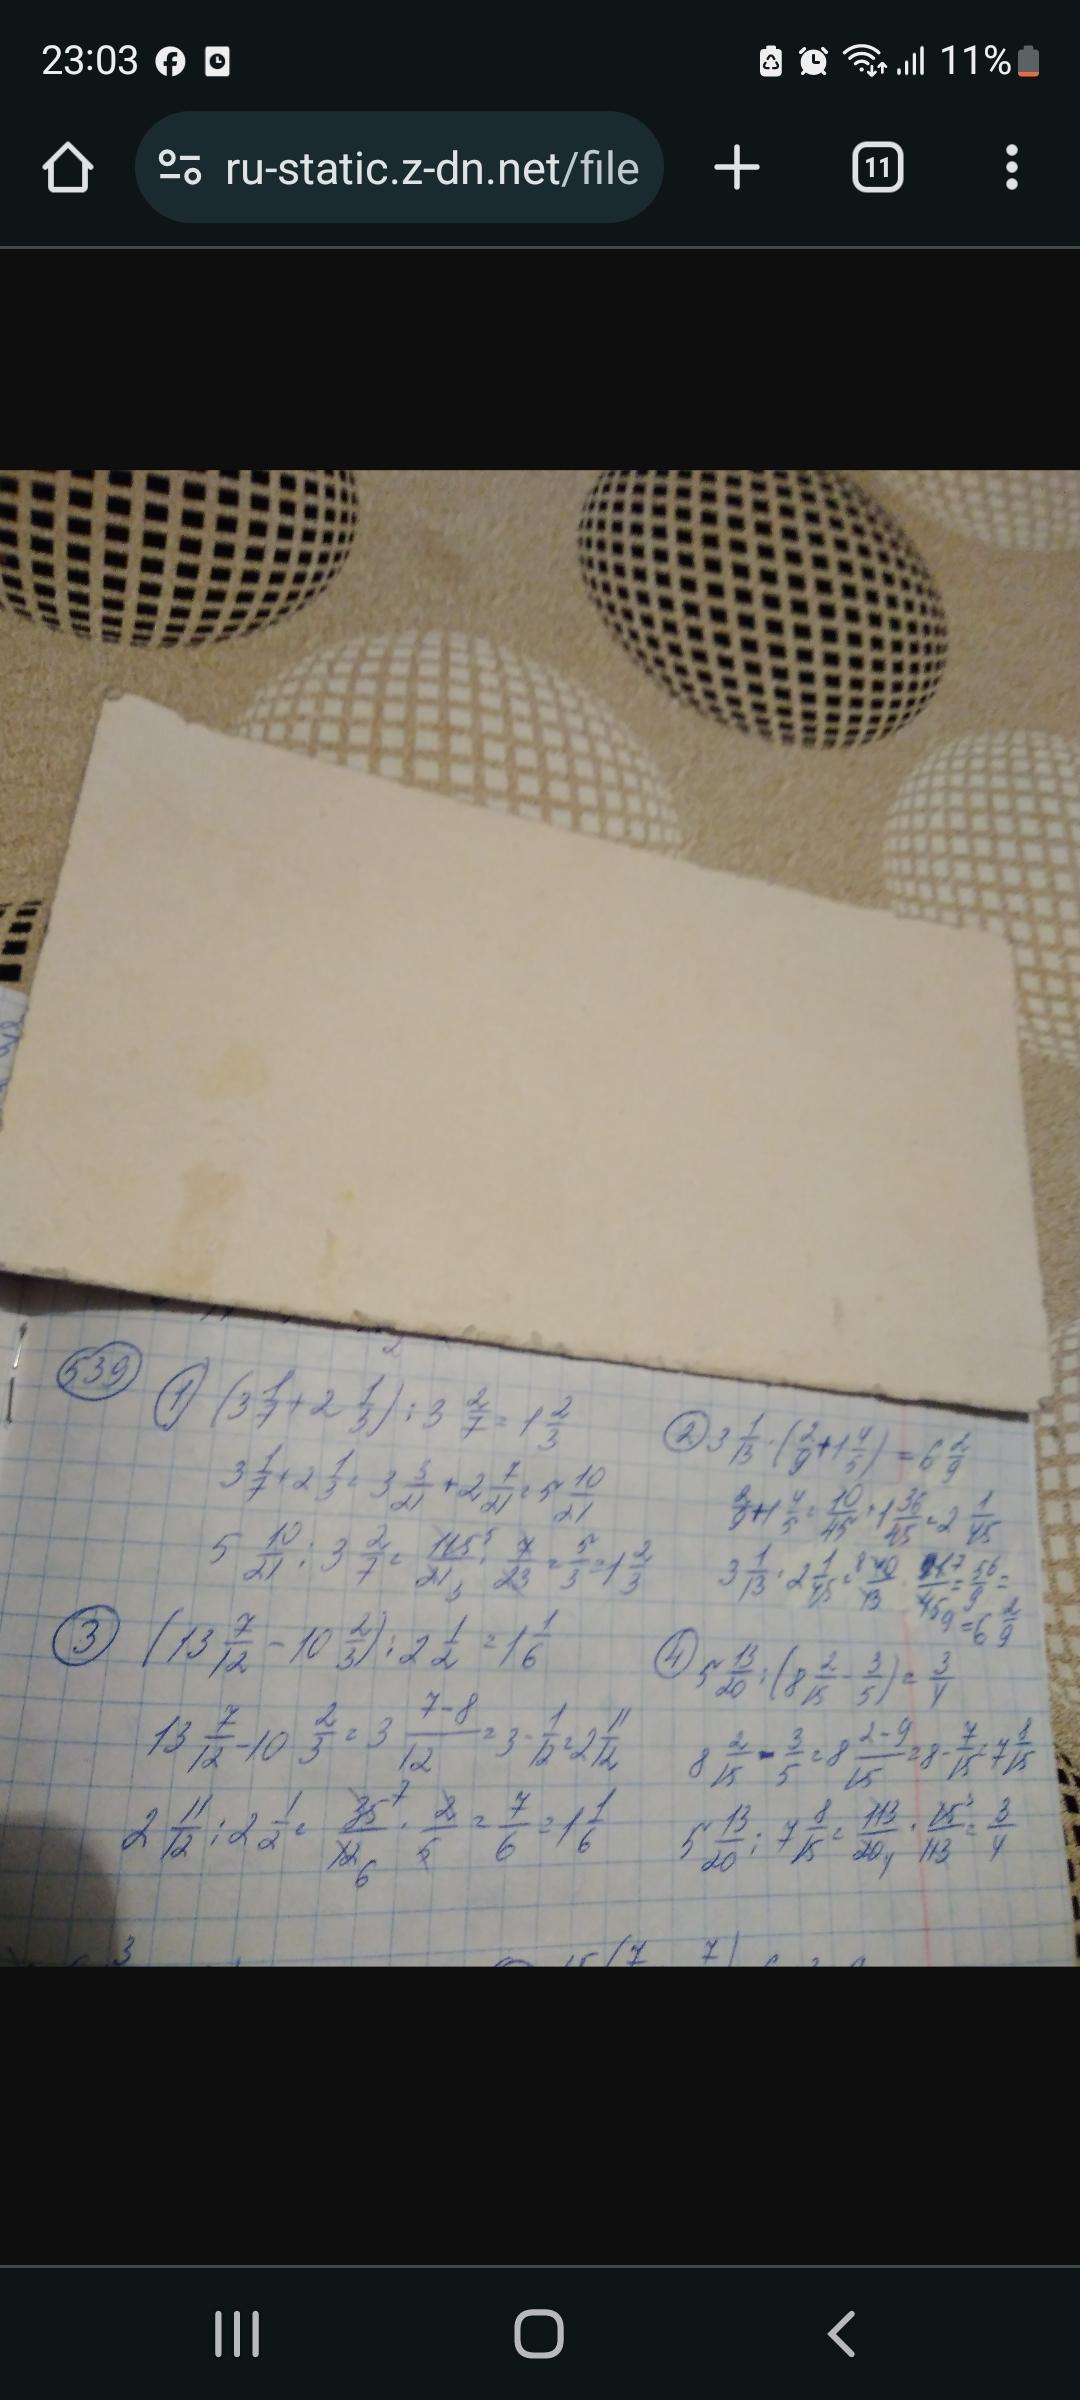 23:03
11%
ru-static.z-dn.net/file
11
539
1) (3 1/7 + 2 1/3) : 3 2/7 = 1 2/3
3 1/7 + 2 1/3 = 3 3/21 + 2 7/21 = 5 10/21
5 10/21 : 3 2/7 = 115/21 · 7/23 = 5/3 = 1 2/3
2) 3 1/13 · (2/9 + 1 4/5) = 6 2/9
2/9 + 1 4/5 = 10/45 + 1 36/45 = 2 1/45
3 1/13 · 2 1/45 = 40/13 · 91/45 = 56/9 =
= 6 2/9
3) (13 7/12 - 10 2/3) : 2 1/2 = 1 1/6
13 7/12 - 10 2/3 = 3 7-8/12 = 3 - 1/12 = 2 11/12
2 11/12 : 2 1/2 = 35/12 · 2/5 = 7/6 = 1 1/6
4) 5 13/20 : (8 2/15 - 3/5) = 3/4
8 2/15 - 3/5 = 8 2-9/15 = 8 - 7/15 = 7 8/15
5 13/20 : 7 8/15 = 113/20 · 15/113 = 3/4